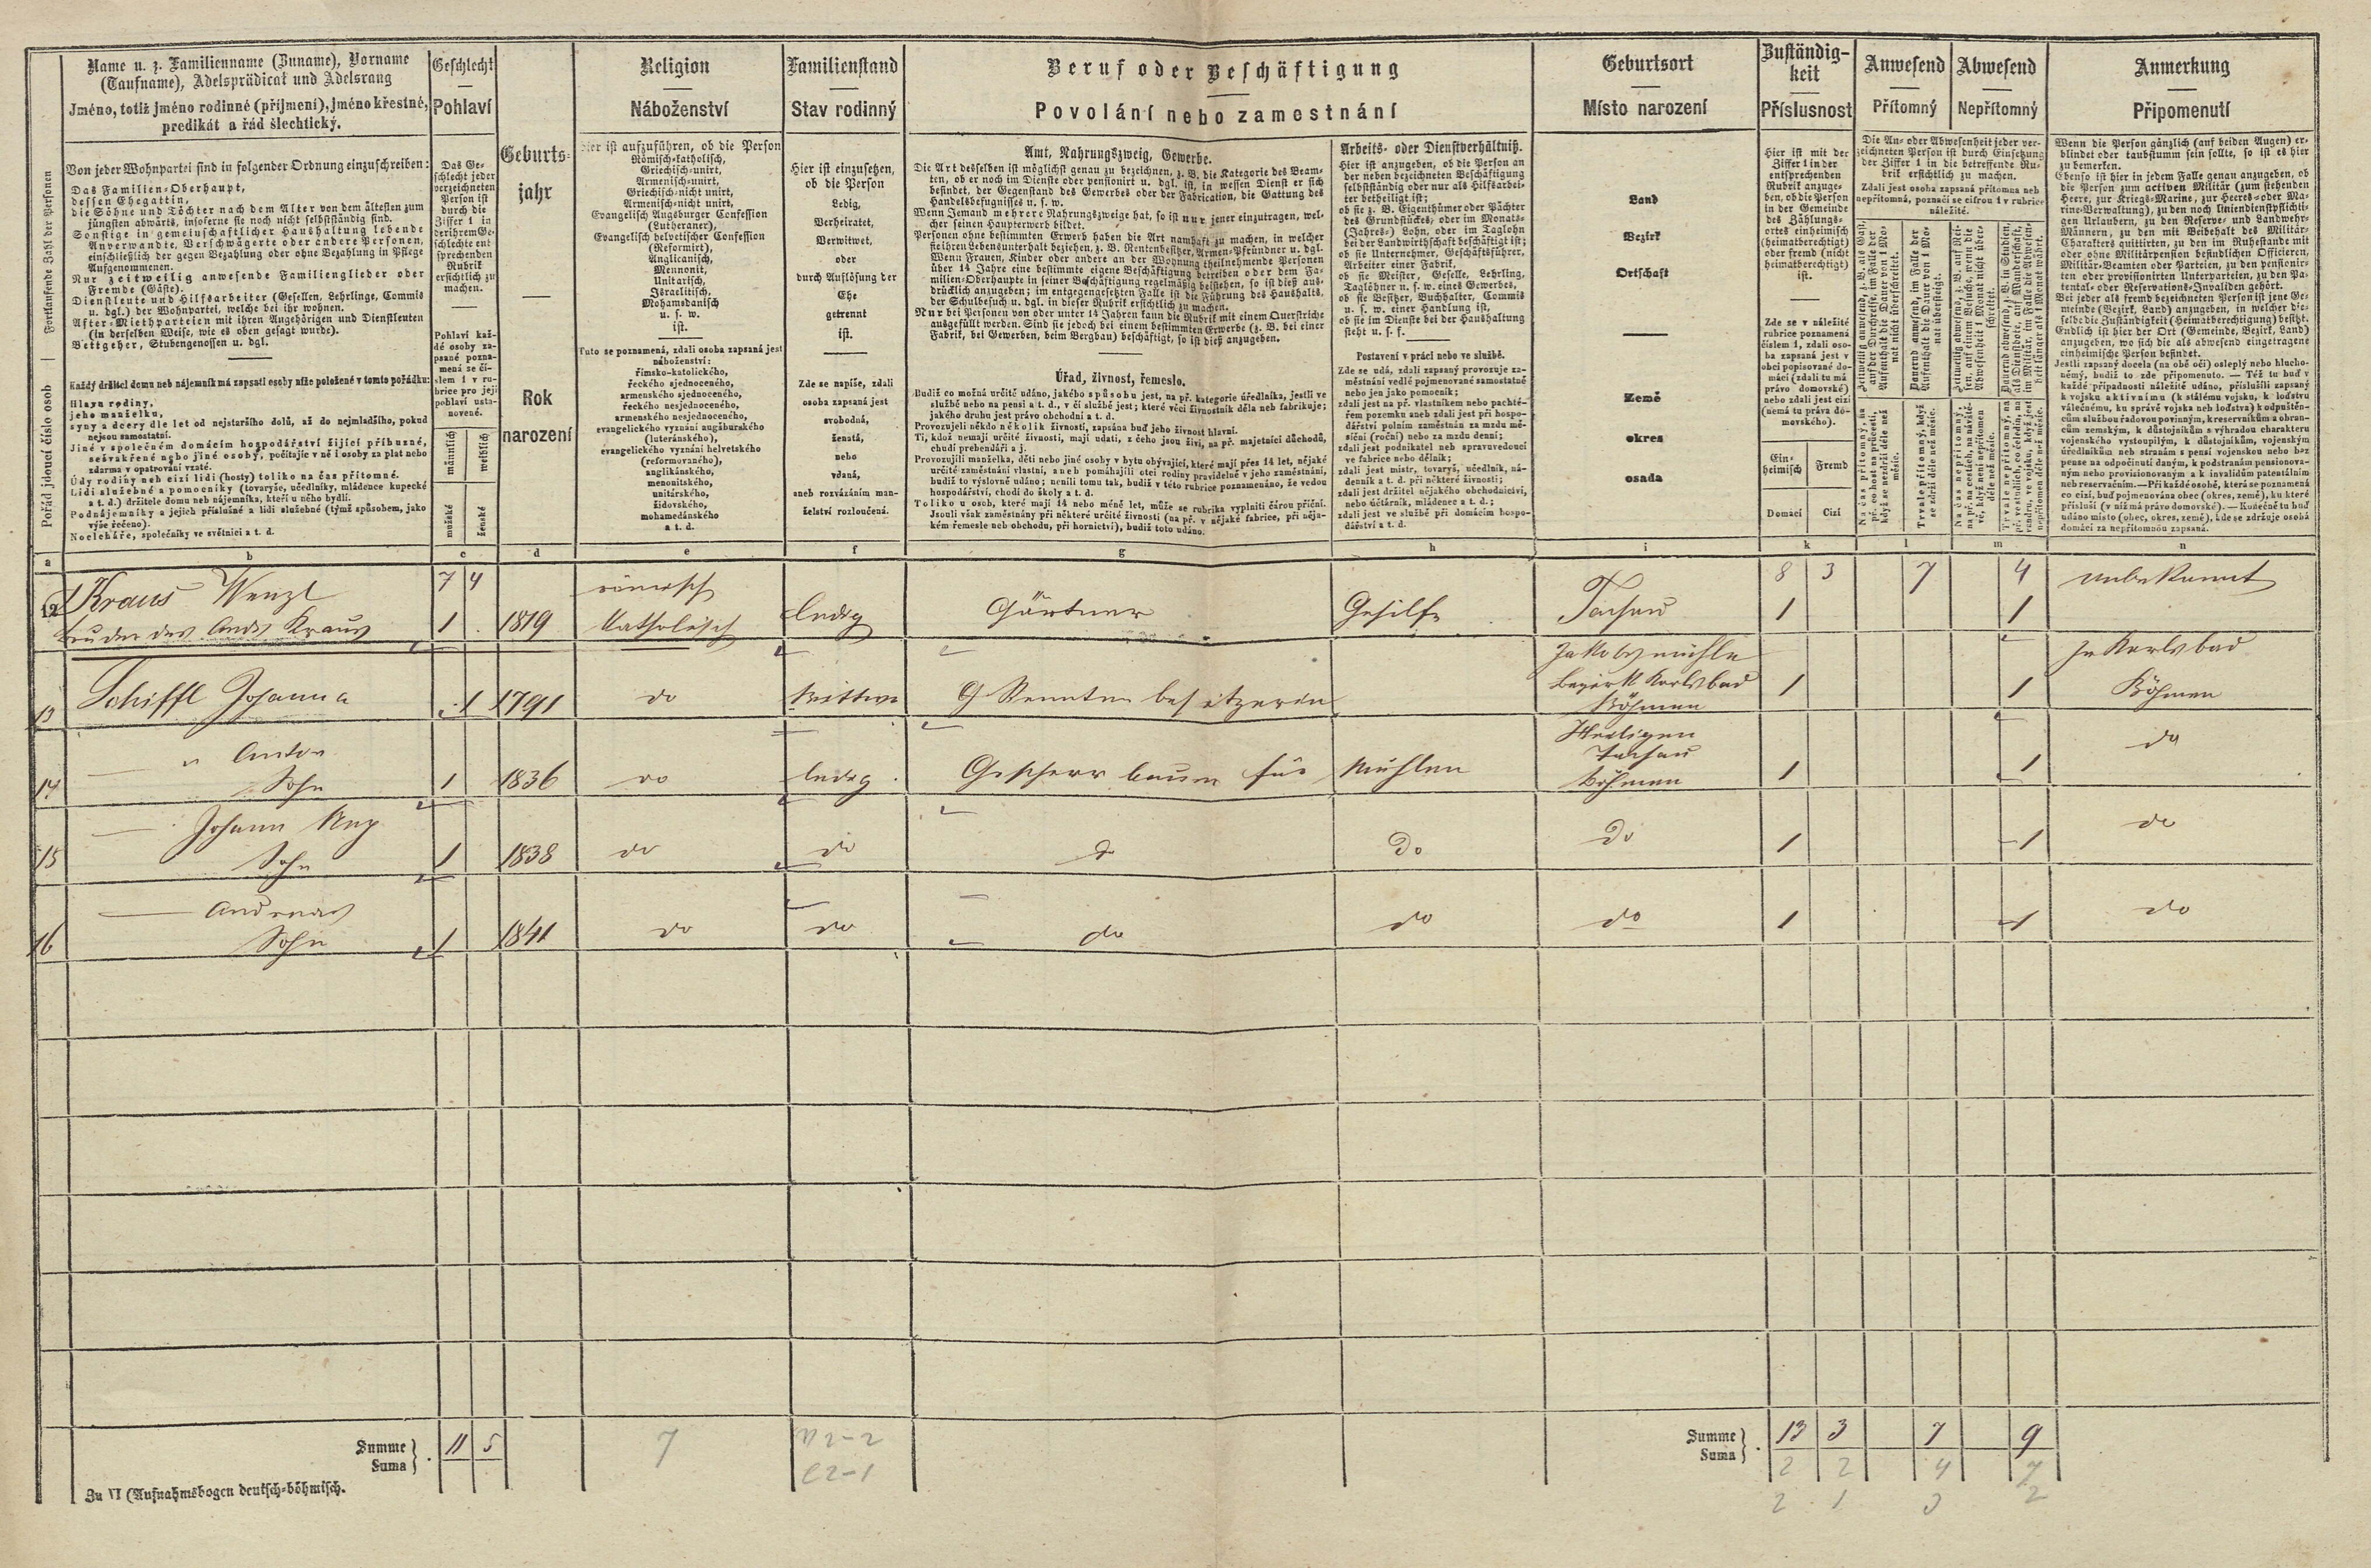 Name u. z. Familienname (Zuname), Vorname
(Taufname), Adelsprädicat und Adelsrang
Jméno, totiž jméno rodinné (příjmení), jméno křestné,
predikát a řád šlechtický.
Von jeder Wohnpartei sind in folgender Ordnung einzuschreiben:
Das Familien-Oberhaupt,
dessen Ehegattin,
die Söhne und Töchter nach dem Alter von dem ältesten zum
jüngsten abwärts, insoferne sie noch nicht selbstständig sind.
Sonstige in gemeinschaftlicher Haushaltung lebende
Anverwandte, Verschwägerte oder andere Personen,
einschließlich der gegen Bezahlung oder ohne Bezahlung in Pflege
Aufgenommenen.
Nur zeitweilig anwesende Familienglieder oder
Fremde (Gäste).
Dienstleute und Hilfsarbeiter (Gesellen, Lehrlinge, Commis
u. dgl.) der Wohnpartei, welche bei ihr wohnen.
After-Miethparteien mit ihren Angehörigen und Dienstleuten
(in derselben Weise, wie es oben gesagt wurde).
Bettgeher, Stubengenossen u. dgl.
Každý držitel domu neb nájemník má zapsati osoby níže položené v tomto pořádku:
Hlava rodiny,
jeho manželku,
syny a dcery dle let od nejstaršího dolů, až do nejmladšího, pokud
nejsou samostatni.
Jiné v společném domácím hospodářství žijící příbuzné,
sešvakřené nebo jiné osoby, počítajíc v ně i osoby za plat nebo
zdarma v opatrování vzaté.
Údy rodiny neb cizí lidi (hosty) toliko na čas přítomné.
Lidi služebné a pomocníky (tovaryše, učedlníky, mládence kupecké
a t. d.) držitele domu neb nájemníka, kteří u něho bydlí.
Podnájemníky a jejich příslušné a lidi služebné (týmž spůsobem, jako
výše řečeno).
Nocleháře, společníky ve světnici a t. d.
Fortlaufende Zahl der Personen
Pořád jdoucí číslo osob
Geschlecht
Pohlaví
Das Ge-
schlecht jeder
verzeichneten
Person ist
durch die
Ziffer 1 in
der ihrem Ge-
schlechte ent
sprechenden
Rubrik
ersichtlich zu
machen.
Pohlaví kaž-
dé osoby za-
psané pozna-
mená se čí-
slem 1 v ru-
brice pro její
pohlaví usta-
novené.
männlich
weiblich
mužské
ženské
Geburts-
jahr
Rok
narození
Religion
Náboženství
Hier ist aufzuführen, ob die Person
Römisch-katholisch,
Griechisch-unirt,
Armenisch-unirt,
Griechisch-nicht unirt,
Armenisch-nicht unirt,
Evangelisch Augsburger Confession
(Lutheraner),
Evangelisch helvetischer Confession
(Reformirt),
Anglicanisch,
Mennonit,
Unitarisch,
Israelitisch,
Mohamedanisch
u. s. w.
ist.
Tuto se poznamená, zdali osoba zapsaná jest
náboženství:
římsko-katolického,
řeckého sjednoceného,
armenského sjednoceného,
řeckého nesjednoceného,
armenského nesjednoceného,
evangelického vyznání augšburského
(luteránského),
evangelického vyznání helvetského
(reformovaného),
anglikánského,
menonitského,
unitárského,
židovského,
mohamedánského
a t. d.
Familienstand
Stav rodinný
Hier ist einzusetzen,
ob die Person
Ledig,
Verheiratet,
Verwitwet,
oder
durch Auflösung der
Ehe
getrennt
ist.
Zde se napíše, zdali
osoba zapsaná jest
svobodná,
ženatá,
nebo
vdaná,
aneb rozvázáním man-
želství rozloučená.
Beruf oder Beschäftigung
Povolání nebo zamestnání
Amt, Nahrungszweig, Gewerbe.
Die Art desselben ist möglichst genau zu bezeichnen, z. B. die Kategorie des Beam-
ten, ob er noch im Dienste oder pensionirt u. dgl. ist, in wessen Dienst er sich
befindet, der Gegenstand des Gewerbes oder der Fabrication, die Gattung des
Handelsbefugnisses u. s. w.
Wenn Jemand mehrere Nahrungszweige hat, so ist nur jener einzutragen, wel-
cher seinen Haupterwerb bildet.
Personen ohne bestimmten Erwerb haben die Art namhaft zu machen, in welcher
sie ihren Lebensunterhalt beziehen, z. B. Rentenbesitzer, Armen-Pfründner u. dgl.
Wenn Frauen, Kinder oder andere an der Wohnung theilnehmende Personen
über 14 Jahre eine bestimmte eigene Beschäftigung betreiben oder dem Fa-
milien-Oberhaupte in seiner Beschäftigung regelmäßig beistehen, so ist dieß aus-
drücklich anzugeben; im entgegengesetzten Falle ist die Führung des Haushalts,
der Schulbesuch u. dgl. in dieser Rubrik ersichtlich zu machen.
Nur bei Personen von oder unter 14 Jahren kann die Rubrik mit einem Querstriche
ausgefüllt werden. Sind sie jedoch bei einem bestimmten Erwerbe (z. B. bei einer
Fabrik, bei Gewerben, beim Bergbau) beschäftigt, so ist dieß anzugeben.
Úřad, živnost, řemeslo.
Budiž co možná určitě udáno, jakého spůsobu jest, na př. kategorie úředlníka, jestli ve
službě nebo na pensi a t. d., v čí službě jest; které věci živnostník dělá neb fabrikuje;
jakého druhu jest právo obchodní a t. d.
Provozuje-li někdo několik živností, zapsána buď jeho živnost hlavní.
Ti, kdož nemají určité živnosti, mají udati, z čeho jsou živi, na př. majetníci důchodů,
chudí prebendáři a j.
Provozují-li manželka, děti nebo jiné osoby v bytu obývající, které mají přes 14 let, nějaké
určité zaměstnání vlastní, aneb pomáhají-li otci rodiny pravidelně v jeho zaměstnání,
budiž to výslovně udáno; není-li tomu tak, budiž v této rubrice poznamenáno, že vedou
hospodářství, chodí do školy a t. d.
Toliko u osob, které mají 14 nebo méně let, může se rubrika vyplniti čárou příční.
Jsou-li však zaměstnány při některé určité živnosti (na př. v nějaké fabrice, při něja-
kém řemesle neb obchodu, při hornictví), budiž toto udáno.
Arbeits- oder Dienstverhältniß.
Hier ist anzugeben, ob die Person an
der neben bezeichneten Beschäftigung
selbstständig oder nur als Hilfsarbei-
ter betheiligt ist;
ob sie z. B. Eigenthümer oder Pächter
des Grundstückes, oder im Monats-
(Jahres-) Lohn, oder im Taglohn
bei der Landwirthschaft beschäftigt ist;
ob sie Unternehmer, Geschäftsführer,
Arbeiter einer Fabrik,
ob sie Meister, Geselle, Lehrling,
Taglöhner u. s. w. eines Gewerbes,
ob sie Besitzer, Buchhalter, Commis
u. s. w. einer Handlung ist,
ob sie im Dienste bei der Haushaltung
steht u. s. f.
Postavení v práci nebo ve službě.
Zde se udá, zdali zapsaný provozuje za-
městnání vedlé pojmenované samostatně
nebo jen jako pomocník;
zdali jest na př. vlastníkem nebo pachtě-
řem pozemku aneb zdali jest při hospo-
dářství polním zaměstnán za mzdu mě-
síční (roční) nebo za mzdu denní;
zdali jest podnikatel neb spravující
ve fabrice nebo dělník;
zdali jest mistr, tovaryš, učedlník, ná-
denník a t. d. při některé živnosti;
zdali jest držitel nějakého obchodnictví,
nebo účtárník, mládenec a t. d.;
zdali jest ve službě při domácím hospo-
dářství a t. d.
Geburtsort
Místo narození
Land
Bezirk
Ortschaft
Země
okres
osada
Zuständig-
keit
Příslusnost
Hier ist mit der
Ziffer 1 in der
entsprechenden
Rubrik anzuge-
ben, ob die Person
in der Gemeinde
des Zählungs-
ortes einheimisch
(heimatberechtigt)
oder fremd (nicht
heimatberechtigt)
ist.
Zde se v náležité
rubrice poznamená
číslem 1, zdali oso-
ba zapsaná jest v
obci popisované do-
mácí (zdali tu má
právo domovské)
nebo zdali jest cizí
(nemá tu práva do-
movského).
Ein-
heimisch
Fremd
Domácí
Cizí
Anwesend
Přítomný
Abwesend
Nepřítomný
Die An- oder Abwesenheit jeder ver-
zeichneten Person ist durch Einsetzung
der Ziffer 1 in die betreffende Ru-
brik ersichtlich zu machen.
Zdali jest osoba zapsaná přítomna neb
nepřítomná, poznačí se cifrou 1 v rubrice
náležité.
Zeitweilig anwesend, z. B. als Gast,
auf der Durchreise, im Falle der
Aufenthalt die Dauer von 1 Mo-
nat nicht überschreitet.
Dauernd anwesend, im Falle der
Aufenthalt die Dauer von 1 Mo-
nat übersteigt.
Zeitweilig abwesend, z. B. auf Rei-
sen, auf einem Besuche, wenn die
Abwesenheit 1 Monat nicht über-
schreitet.
Na čas přítomný, na
př. co host na průcestí,
když se nezdrží déle než
měsíc.
Trvale přítomný, když
se zdrží déle než měsíc.
Na čas nepřítomný,
na př. na cestách, na návště-
vě, když není nepřítomen
déle než měsíc.
Anmerkung
Připomenutí
Wenn die Person gänzlich (auf beiden Augen) er-
blindet oder taubstumm sein sollte, so ist es hier
zu bemerken.
Ebenso ist hier in jedem Falle genau anzugeben, ob
die Person zum activen Militär (zum stehenden
Heere, zur Kriegs-Marine, zur Heeres- oder Ma-
rine-Verwaltung), zu den noch liniendienstpflichti-
gen Urlaubern, zu den Reserve- und Landwehr-
Männern, zu den mit Beibehalt des Militär-
Charakters quittirten, zu den im Ruhestande mit
oder ohne Militärpension befindlichen Officieren,
Militär-Beamten oder Parteien, zu den pensionir-
ten oder provisionirten Unterparteien, zu den Pa-
tental- oder Reservations-Invaliden gehört.
Bei jeder als fremd bezeichneten Person ist jene Ge-
meinde (Bezirk, Land) anzugeben, in welcher die-
selbe die Zuständigkeit (Heimatberechtigung) besitzt.
Endlich ist hier der Ort (Gemeinde, Bezirk, Land)
anzugeben, wo sich die als abwesend eingetragene
einheimische Person befindet.
Jestli zapsaný docela (na obě oči) osleplý nebo hlucho-
němý, budiž to zde připomenuto. — Též tu buď v
každé případnosti náležitě udáno, přísluší-li zapsaný
k vojsku aktivnímu (k stálému vojsku, k loďstvu
válečnému, ku správě vojska neb loďstva) k odpuštěn-
cům službou řadovou povinným, k reservníkům a obran-
cům zemským, k důstojníkům s výhradou charakteru
vojenského vystouplým, k důstojníkům, vojenským
úředlníkům neb stranám s pensí vojenskou nebo bez
pense na odpočinutí daným, k podstranám pensionova-
ným nebo provisionovaným a k invalidům patentálním
neb reservačním. — Při každé osobě, která se poznamená
co cizí, buď pojmenována obec (okres, země), ku které
přísluší (v níž má právo domovské). — Konečně tu buď
udáno místo (obec, okres, země), kde se zdržuje osoba
domácí za nepřítomnou zapsaná.
a b c d e f g h i k l m n
7 4 8 3 7 4
12 Kraus Wenzl 1 1819 römisch Katholisch ledig Gärtner Gehilfe Tachau 1 1 unbekannt
Bruder des Kraus
13 Schiffl Johanna 1 1791 do Wittwe Rentenbesitzerin Jakobsmühle 1 1 In Karlsbad
Bezirk Karlsbad Böhmen
Böhmen
14 " Anton 1836 do ledig für Mühlen Heiligen 1 1 do
Sohn 1 Tachau
Böhmen
15 Johann Nep 1838 do do do do do 1 1 do
Sohn 1
16 Andreas 1841 do do do do do 1 1 do
Sohn 1
Summe
Suma
11 5
7
2-2
2-1
Summe
Suma
13 3 7 9
2 2 4 7
2 1 3 2
Zu VI (Aufnahmsbogen deutsch-böhmisch.